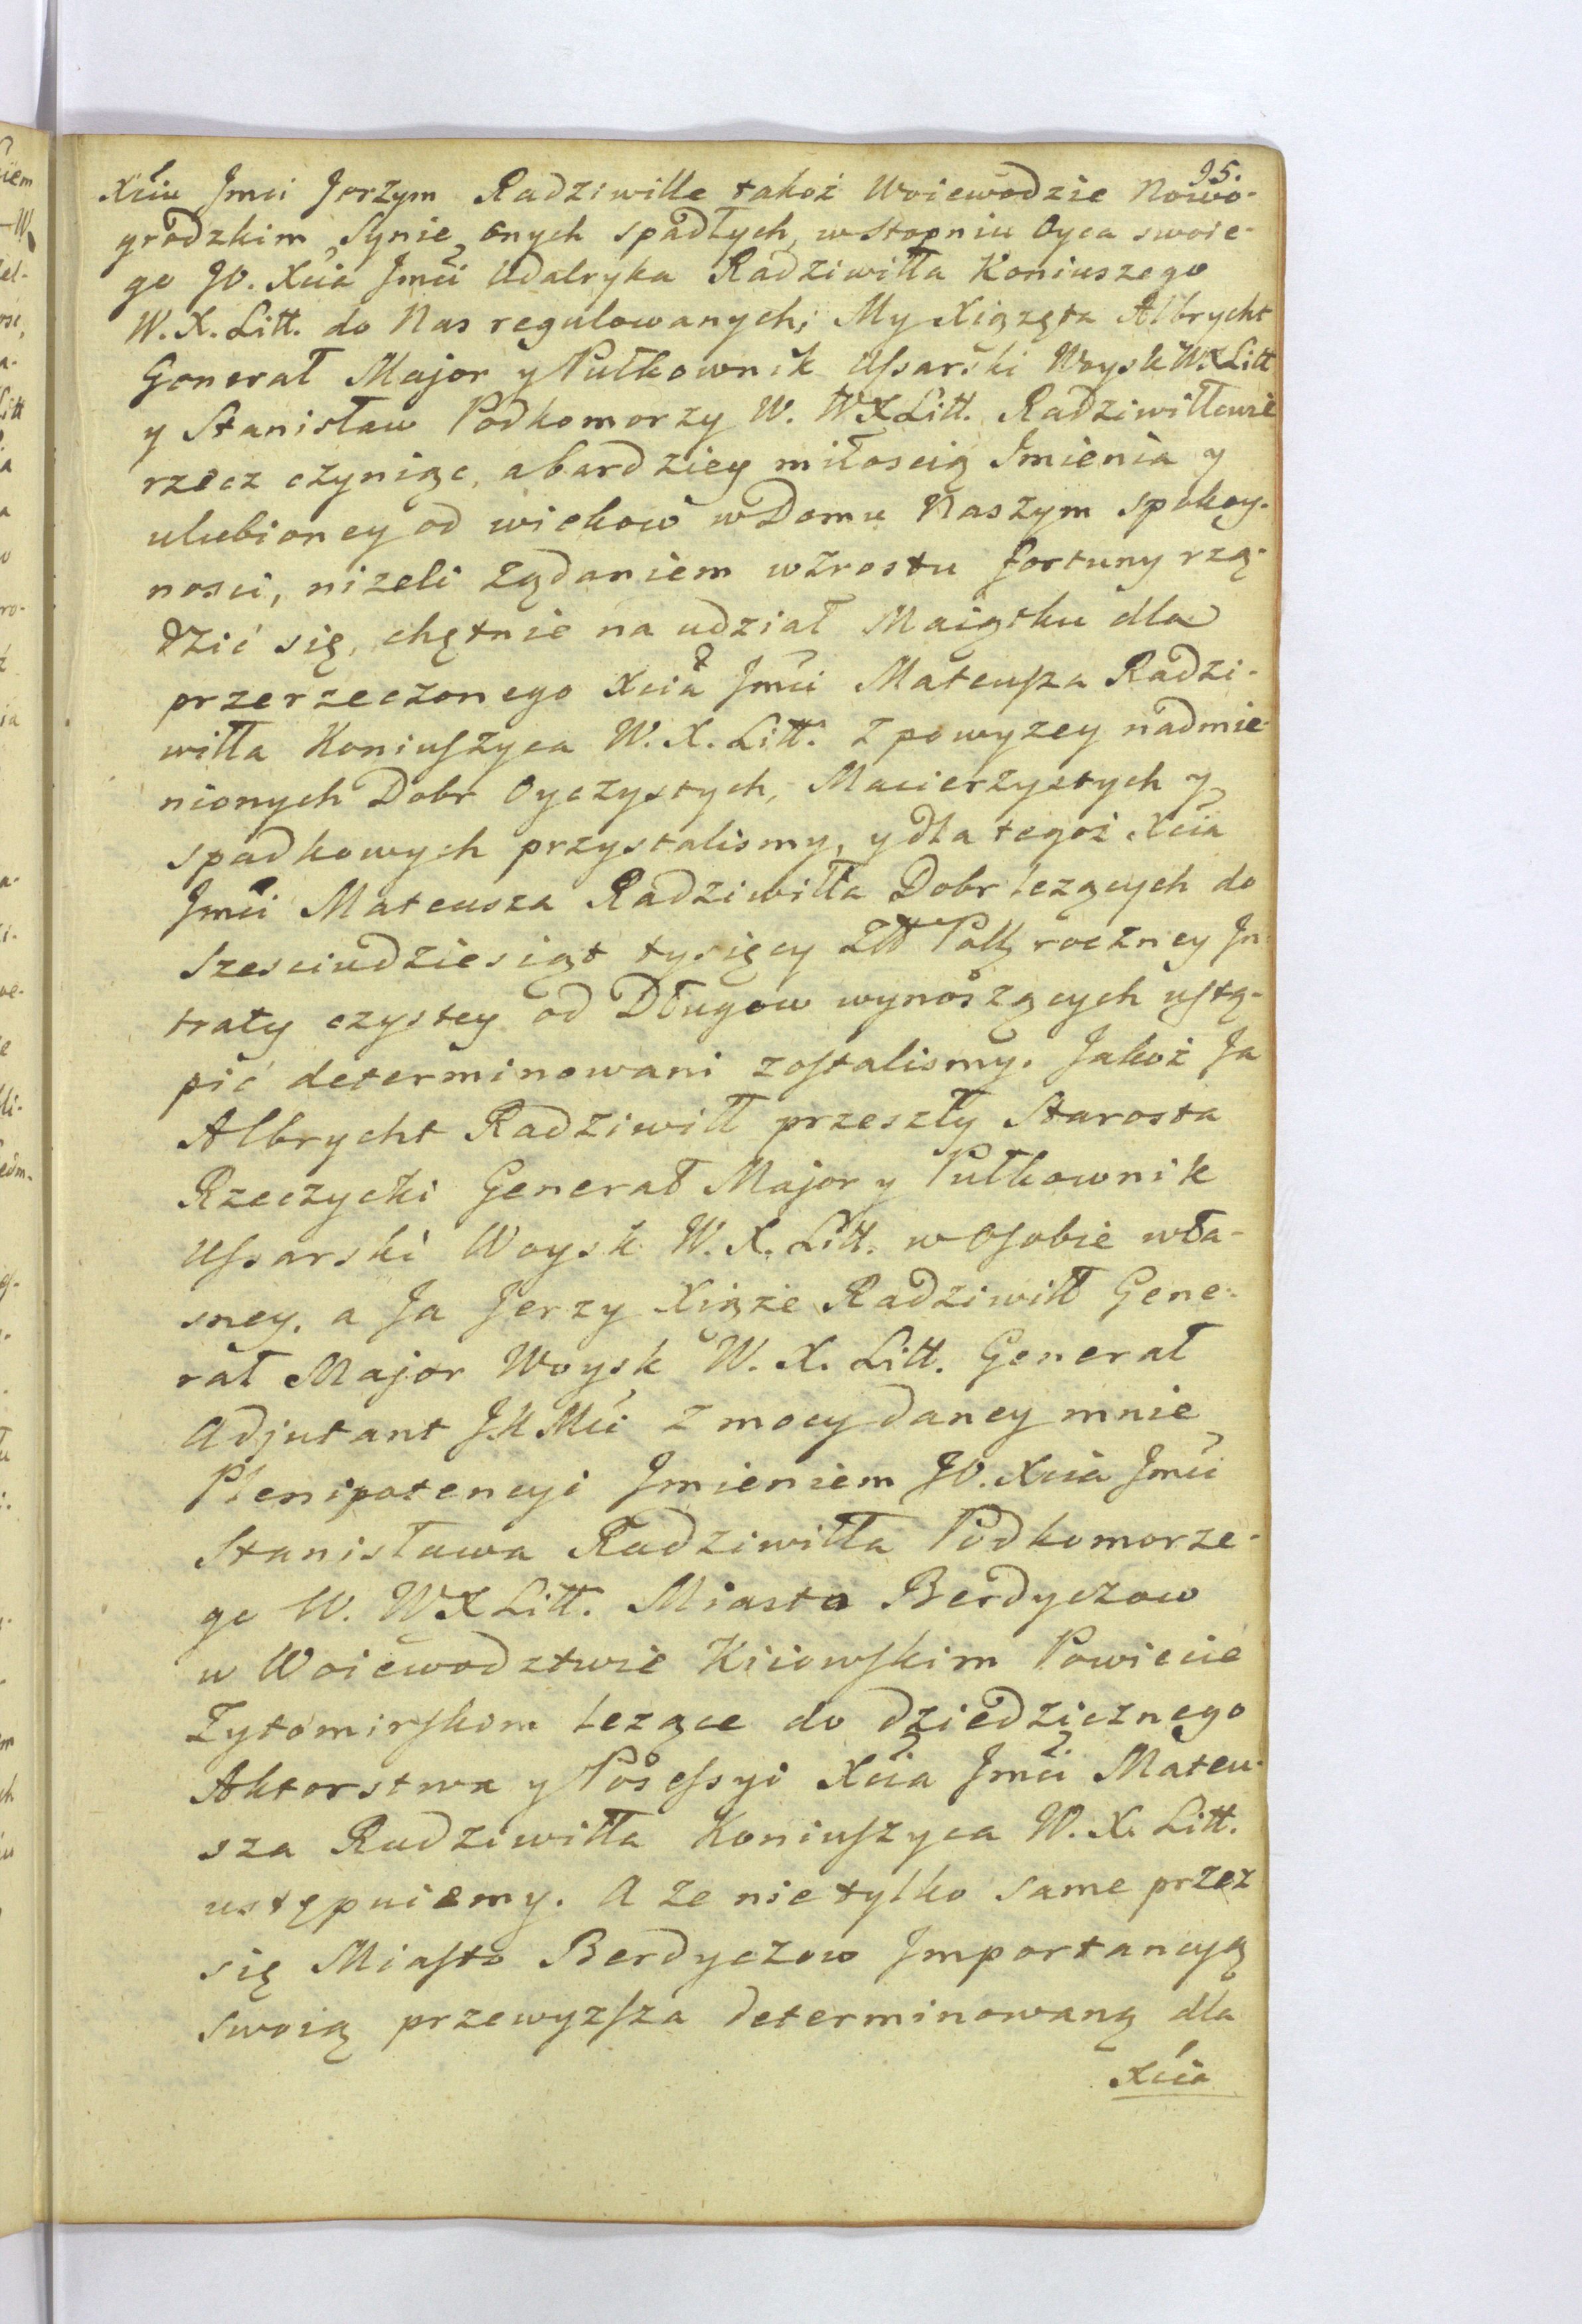 95.
Xciu Jmci Jerzym Radziwille takoż Woiewodzie Nowo-
grodzkim Synie onych spadłych, w Stopniu Oyca swoie-
go JO. Xcia Jmci Udalryka Radziwiłła Koniuszego
W. X. Litt. do Nas regulowanych; My Xiązęta Albrycht
Generał Major y Pułkownik Ussarski Woysk W. X Litt
y Stanisław Podkomorzy W. W X Litt. Radziwiłłowie
rzecz czyniąc, a bardziey miłoscią Imienia y
ulubioney od wiekow w Domu Naszym spokoy-
nosci, nizeli Ządaniem wzrostu fortuny rzą-
dzić się, chętnie na udział Maiątku dla
przerzeczonego Xcia Jmci Mateusza Radzi-
wiłła Koniuszyca W. X. Litt. z powyzey nadmie-
nionych Dobr Oyczystych, Macierzystych y
spadkowych przystalismy, y dla tegoż Xcia
Jmci Mateusza Radziwiłła Dobr lezących do
Szesciudziesiąt tysięcy Złł Polł roczney In-
traty czystey od Długow wynoszących ustą-
pić determinowani zostalismy. Jakoż Ja
Albrycht Radziwiłł przeszły Starosta
Rzeczycki Generał Major y Pułkownik
Ussarski Woysk W. X. Litt. w Osobie wła-
sney, a Ja Jerzy Xiąże Radziwiłł Gene-
rał Major Woysk W. X. Litt. Generał
Adjutant JK Mci z mocy daney mnie
Plenipotencyi Imieniem JO. Xcia Jmci
Stanisława Radziwiłła Podkomorze-
go W. W X Litt. Miasto Berdyczow
w Woiewodztwie Kiiowskim Powiecie
Zytomirskom lezące do dziedzicznego
Aktorstwa y Posessyi Xcia Jmci Mateu-
sza Radziwiłła Koniuszyca W. X. Litt.
ustępuiemy. A Ze nie tylko same przez
się Miasto Berdyczow Importancyą
swoią przewyzsza determinowaną dla
Xcia